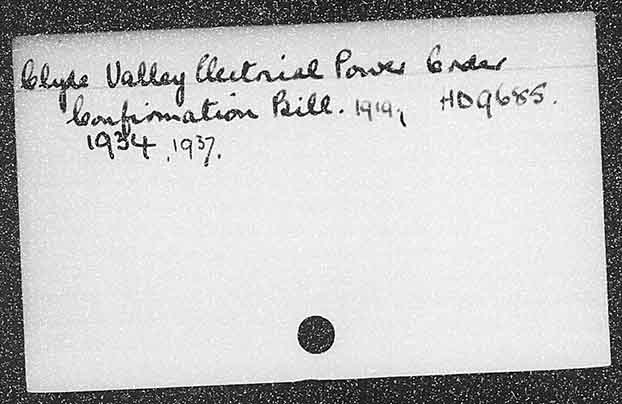 Clyde Valley Electrical Power Order
Confirmation Bill. 1919, HD9685.
1934, 1937.